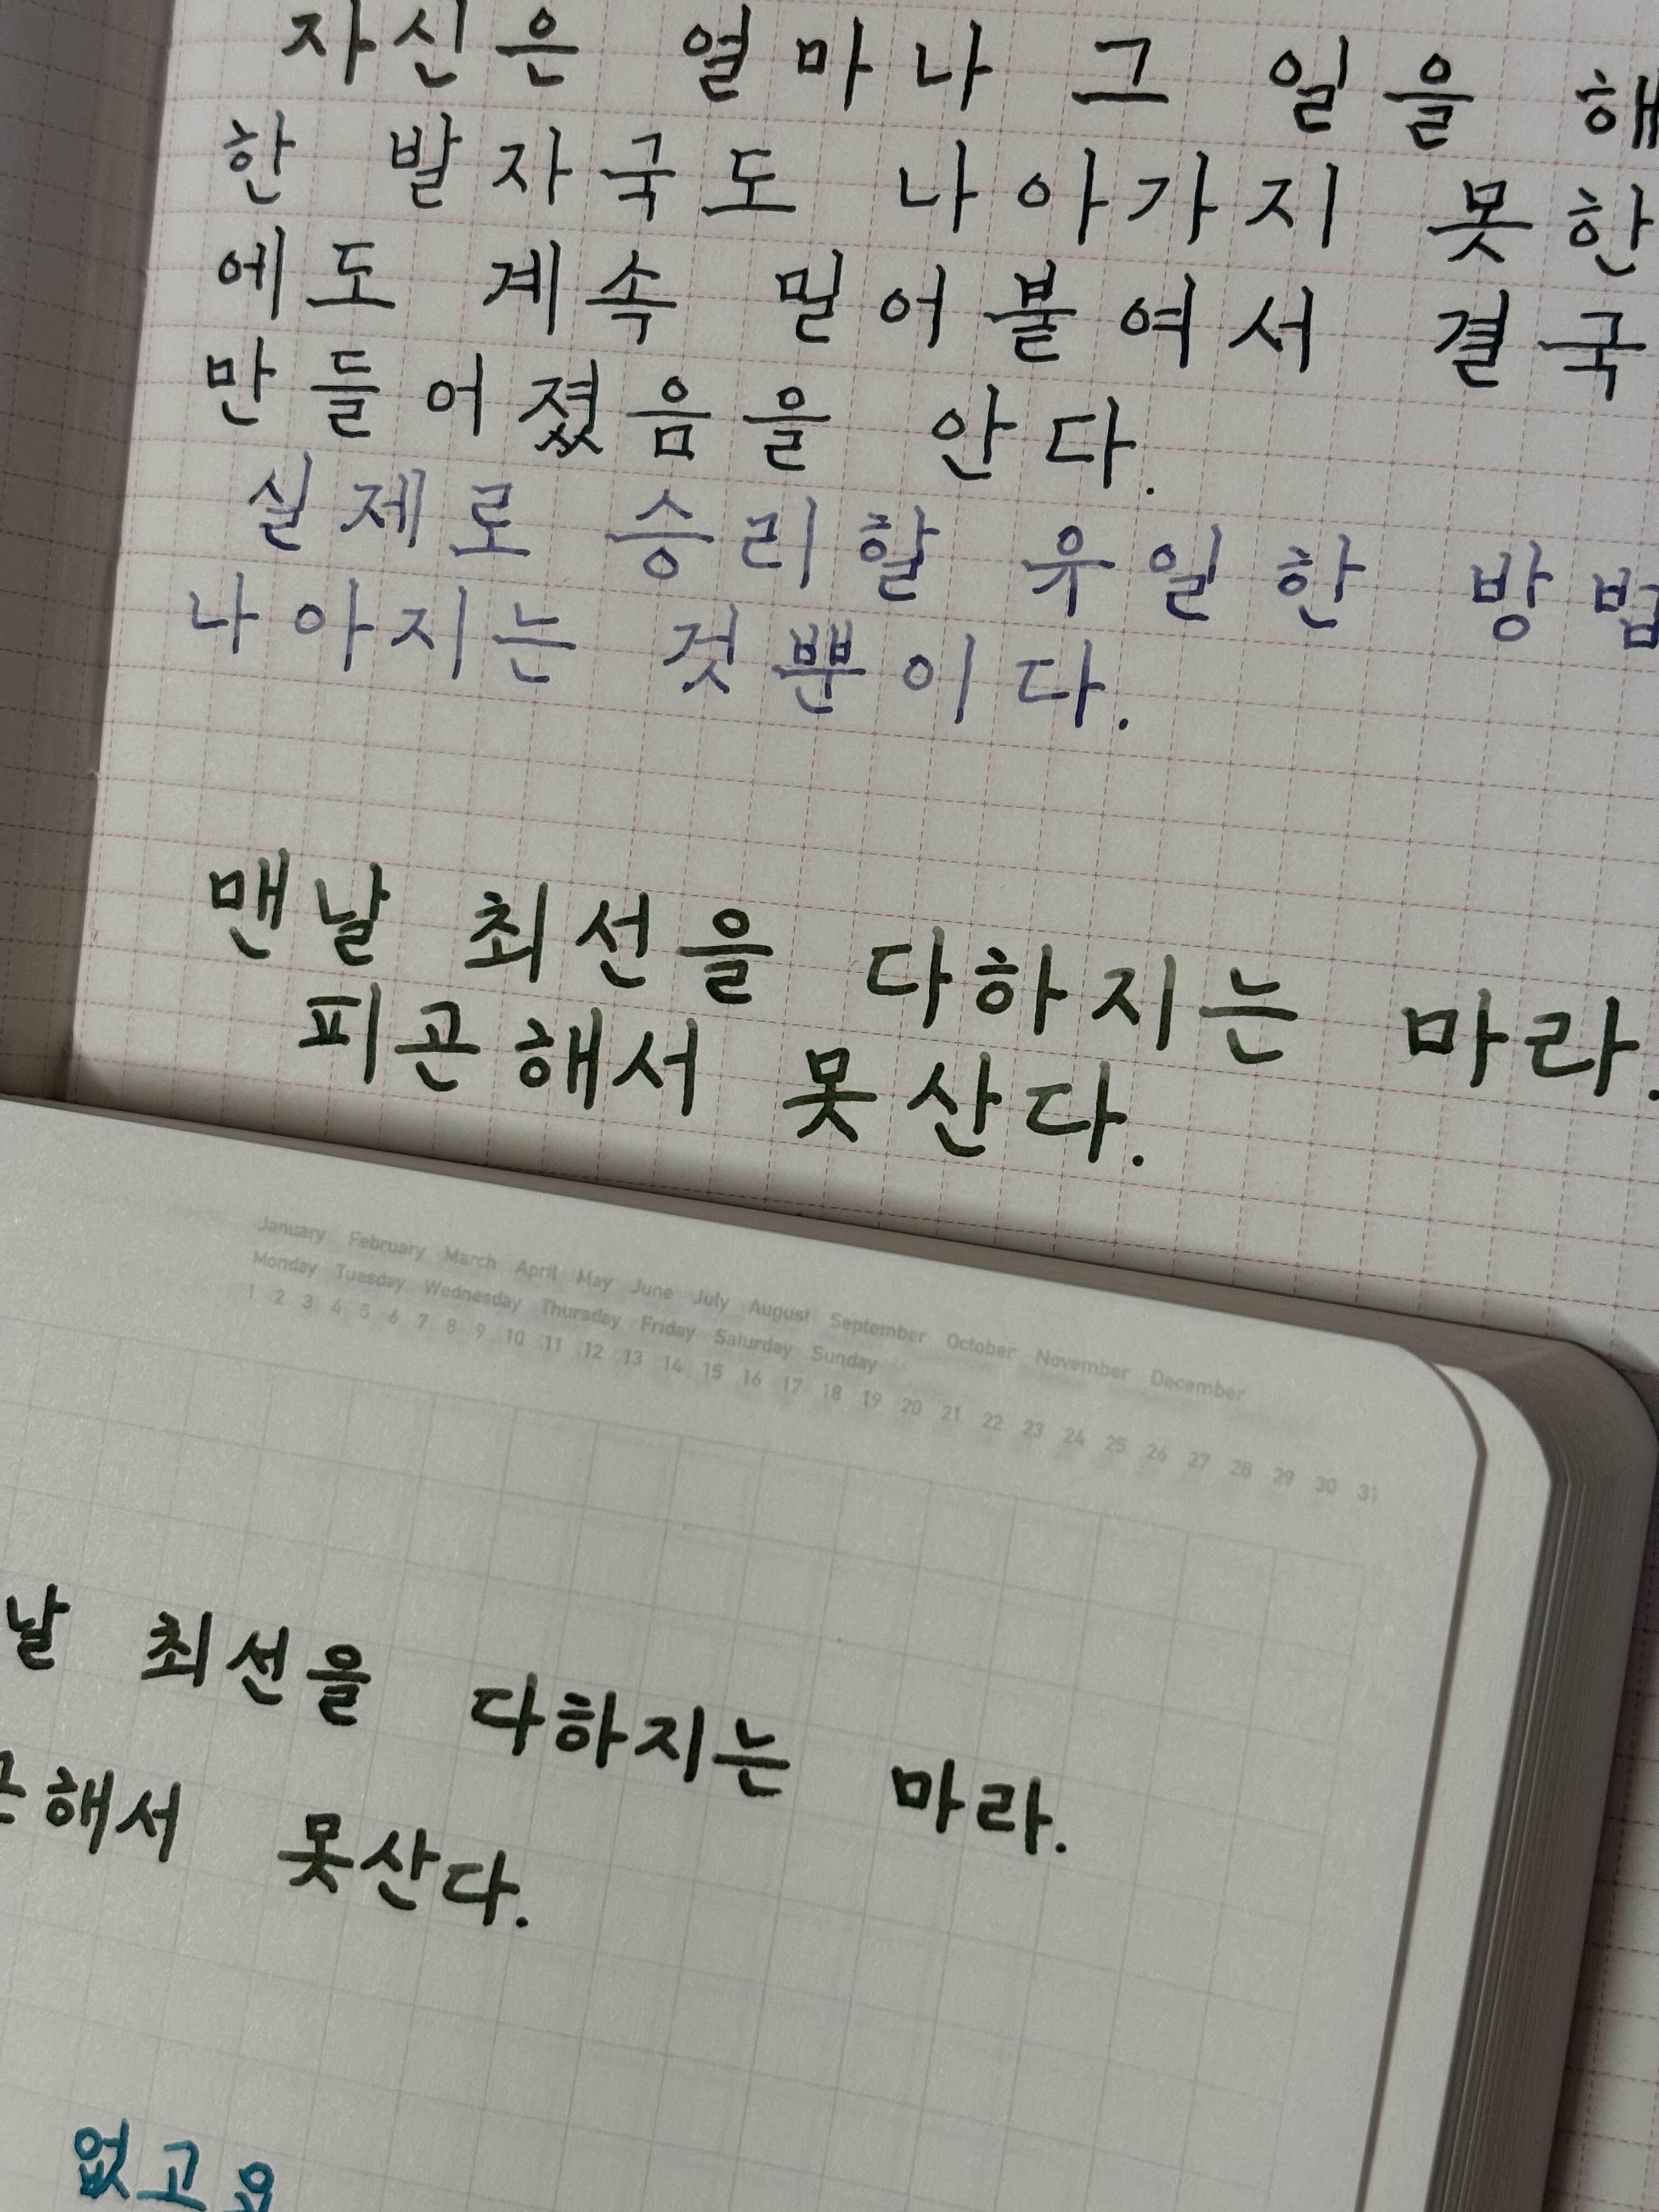 자신은 얼마나 그 일을 해
한 발자국도 나아가지 못한
에도 계속 밀어붙여서 결국
만들어졌음을 안다.
실제로 승리할 유일한 방법
나아지는 것뿐이다.
맨날 최선을 다하지는 마라.
피곤해서 못 산다.
January February March April May June July August September October November December
Monday Tuesday Wednesday Thursday Friday Saturday Sunday
1 2 3 4 5 6 7 8 9 10 11 12 13 14 15 16 17 18 19 20 21 22 23 24 25 26 27 28 29 30 31
날 최선을 다하지는 마라.
곤해서 못산다.
없고요